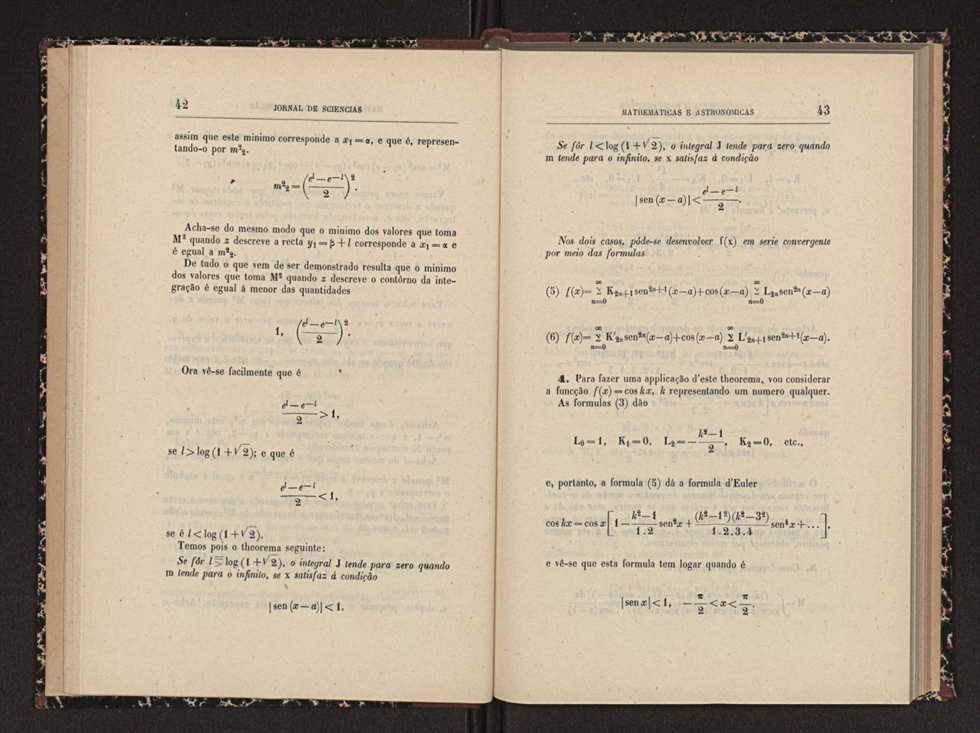 42
JORNAL DE SCIENCIAS
assim que este minimo corresponde a x₁ = α, e que é, represen-
tando-o por m²₂.
m²₂ = ((eˡ — e—ˡ) / 2)².
Acha-se do mesmo modo que o minimo dos valores que toma
M² quando z descreve a recta y₁ = β + l corresponde a x₁ = α e
é egual a m²₂.
De tudo o que vem de ser demonstrado resulta que o minimo
dos valores que toma M² quando z descreve o contôrno da inte-
gração é egual á menor das quantidades
1, ((eˡ — e—ˡ) / 2)².
Ora vê-se facilmente que é
(eˡ — e—ˡ) / 2 > 1,
se l > log (1 + √2); e que é
(eˡ — e—ˡ) / 2 < 1,
se é l < log (1 + √2).
Temos pois o theorema seguinte:
Se fôr l ⋝ log (1 + √2), o integral J tende para zero quando
m tende para o infinito, se x satisfaz á condição
| sen (x — a) | < 1.
MATHEMATICAS E ASTRONOMICAS
43
Se fôr l < log (1 + √2), o integral J tende para zero quando
m tende para o infinito, se x satisfaz á condição
| sen (x — a) | < (eˡ — e—ˡ) / 2.
Nos dois casos, póde-se desenvolver f(x) em serie convergente
por meio das formulas
(5) f(x) = Σ_{n=0}^{∞} K₂ₙ₊₁ sen²ⁿ⁺¹(x—a) + cos (x—a) Σ_{n=0}^{∞} L₂ₙ sen²ⁿ (x—a)
(6) f(x) = Σ_{n=0}^{∞} K'₂ₙ sen²ⁿ(x—a) + cos (x—a) Σ_{n=0}^{∞} L'₂ₙ₊₁ sen²ⁿ⁺¹(x—a).
4. Para fazer uma applicação d'este theorema, vou considerar
a funcção f(x) = cos kx, k representando um numero qualquer.
As formulas (3) dão
L₀ = 1, K₁ = 0, L₂ = — (k² — 1) / 2, K₂ = 0, etc.,
e, portanto, a formula (5) dá a formula d'Euler
cos kx = cos x [1 — (k² — 1) / (1 . 2) sen² x + ((k² — 1²)(k² — 3²)) / (1 . 2 . 3 . 4) sen⁴ x + . . . ],
e vê-se que esta formula tem logar quando é
| sen x | < 1, — π / 2 < x < π / 2.